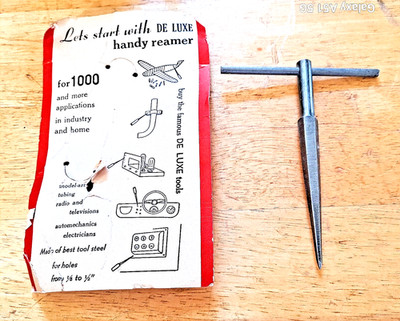 Lets start with DE LUXE
handy reamer
for 1000
and more
applications
in industry
and home
buy the famous DE LUXE tools
tubing
radio and
televisions
automechanics
electricians
Made of best tool steel
for holes
from 1/8 to 1/2"
Galaxy A51 5G